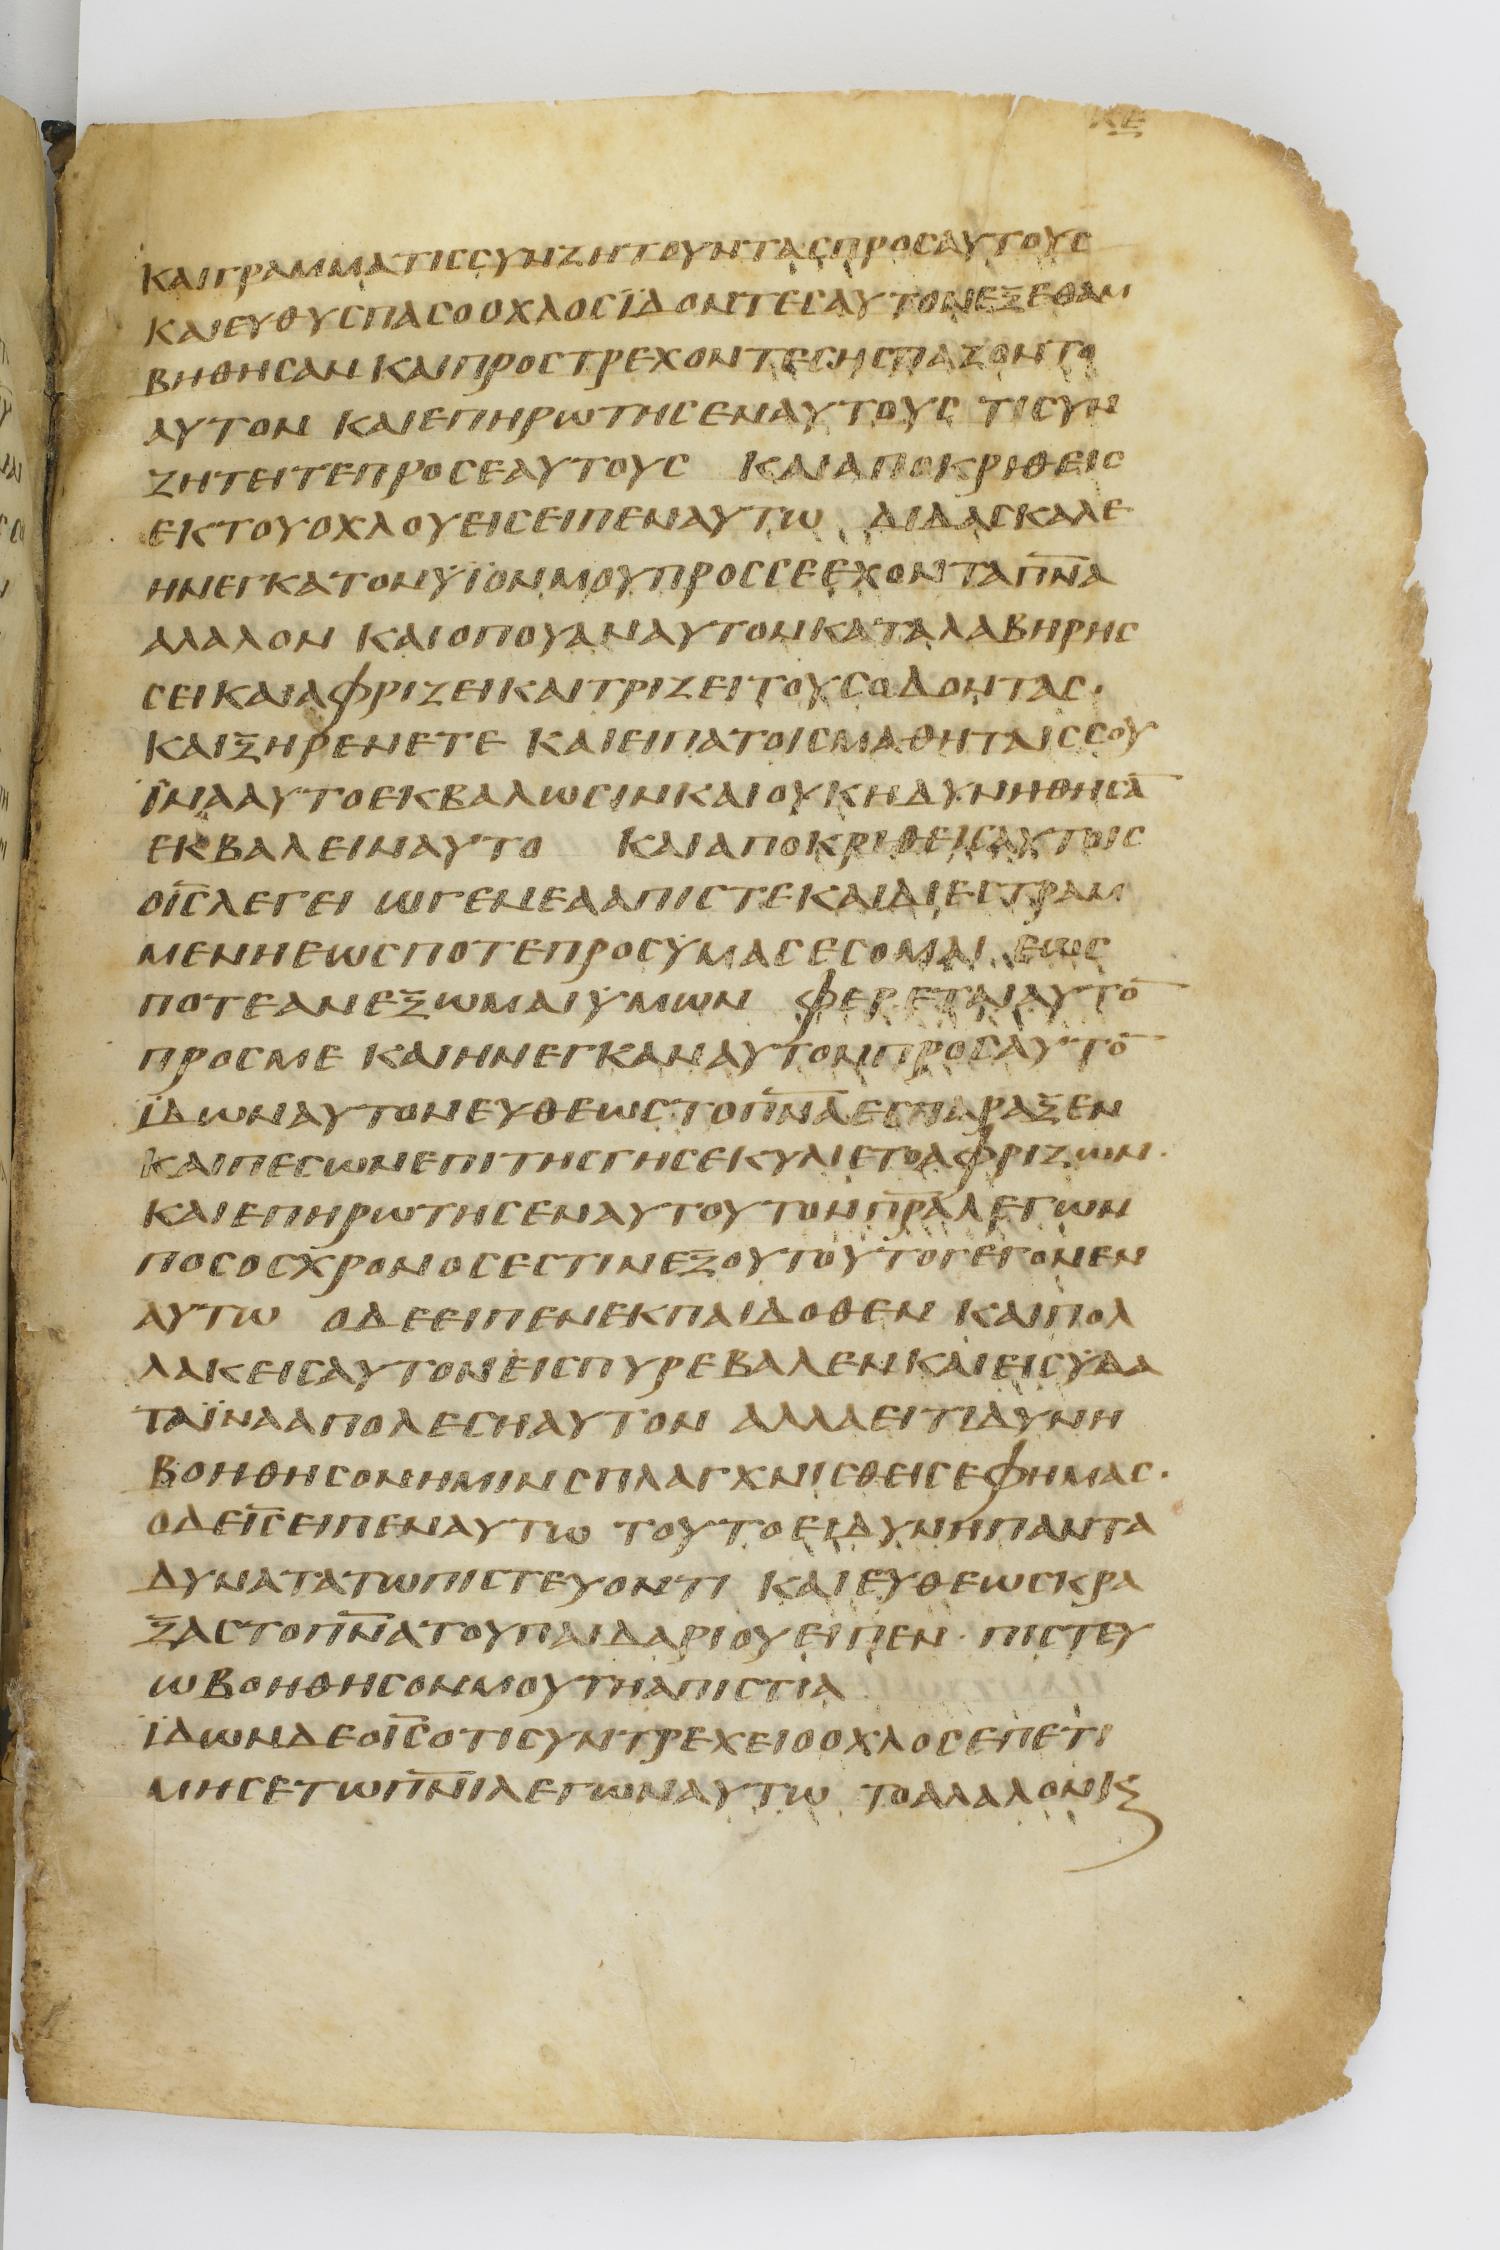 ΚΕ
ΚΑΙΓΡΑΜΜΑΤΙϹϹΥΝΖΗΤΟΥΝΤΑϹΠΡΟϹΑΥΤΟΥϹ
ΚΑΙΕΥΘΥϹΠΑϹΟΟΧΛΟϹΪΔΟΝΤΕϹΑΥΤΟΝΕΞΕΘΑΜ
ΒΗΘΗϹΑΝ ΚΑΙΠΡΟϹΤΡΕΧΟΝΤΕϹΗϹΠΑΖΟΝΤΟ
ΑΥΤΟΝ ΚΑΙΕΠΗΡΩΤΗϹΕΝΑΥΤΟΥϹ ΤΙϹΥΝ
ΖΗΤΕΙΤΕΠΡΟϹΕΑΥΤΟΥϹ ΚΑΙΑΠΟΚΡΙΘΕΙϹ
ΕΚΤΟΥΟΧΛΟΥΕΙϹΕΙΠΕΝΑΥΤΩ ΔΙΔΑϹΚΑΛΕ
ΗΝΕΓΚΑΤΟΝΫΪΟΝΜΟΥΠΡΟϹϹΕΕΧΟΝΤΑΠ̅Ν̅Α̅
ΑΛΑΛΟΝ ΚΑΙΟΠΟΥΑΝΑΥΤΟΝΚΑΤΑΛΑΒΗΡΗϹ
ϹΕΙΚΑΙΑΦΡΙΖΕΙΚΑΙΤΡΙΖΕΙΤΟΥϹΟΔΟΝΤΑϹ·
ΚΑΙΞΗΡΕΝΕΤΕ ΚΑΙΕΙΠΑΤΟΙϹΜΑΘΗΤΑΙϹϹΟΥ
ΪΝΑΑΥΤΟΕΚΒΑΛΩϹΙΝΚΑΙΟΥΚΗΔΥΝΗΘΗϹΑ̅
ΕΚΒΑΛΕΙΝΑΥΤΟ ΚΑΙΑΠΟΚΡΙΘΕΙϹΑΥΤΟΙϹ
ΟΙ̅Ϲ̅ΛΕΓΕΙ ΩΓΕΝΕΑΑΠΙϹΤΕΚΑΙΔΙΕϹΤΡΑΜ
ΜΕΝΗΕΩϹΠΟΤΕΠΡΟϹΫΜΑϹΕϹΟΜΑΙ ΕΩϹ
ΠΟΤΕΑΝΕΞΩΜΑΙΫΜΩΝ ΦΕΡΕΤΑΙΑΥΤΟ̅
ΠΡΟϹΜΕ ΚΑΙΗΝΕΓΚΑΝΑΥΤΟΝΠΡΟϹΑΥΤΟ̅
ΪΔΩΝΑΥΤΟΝΕΥΘΕΩϹΤΟΠ̅Ν̅Α̅ΕϹΠΑΡΑΞΕΝ
ΚΑΙΠΕϹΩΝΕΠΙΤΗϹΓΗϹΕΚΥΛΙΕΤΟΑΦΡΙΖΩΝ·
ΚΑΙΕΠΗΡΩΤΗϹΕΝΑΥΤΟΥΤΟΝΠ̅Ρ̅Α̅ΛΕΓΩΝ
ΠΟϹΟϹΧΡΟΝΟϹΕϹΤΙΝΕΞΟΥΤΟΥΤΟΓΕΓΟΝΕΝ
ΑΥΤΩ ΟΔΕΕΙΠΕΝΕΚΠΑΙΔΟΘΕΝ ΚΑΙΠΟΛ
ΛΑΚΕΙϹΑΥΤΟΝΕΙϹΠΥΡΕΒΑΛΕΝΚΑΙΕΙϹΫΔΑ
ΤΑΪΝΑΑΠΟΛΕϹΗΑΥΤΟΝ ΑΛΛΑΕΙΤΙΔΥΝΗ
ΒΟΗΘΗϹΟΝΗΜΙΝϹΠΛΑΓΧΝΙϹΘΕΙϹΕΦΗΜΑϹ·
ΟΔΕΙ̅Ϲ̅ΕΙΠΕΝΑΥΤΩ ΤΟΥΤΟΕΙΔΥΝΗΠΑΝΤΑ
ΔΥΝΑΤΑΤΩΠΙϹΤΕΥΟΝΤΙ ΚΑΙΕΥΘΕΩϹΚΡΑ
ΞΑϹΤΟΠ̅Ν̅Α̅ΤΟΥΠΑΙΔΑΡΙΟΥΕΙΠΕΝ· ΠΙϹΤΕΥ
ΩΒΟΗΘΗϹΟΝΜΟΥΤΗΑΠΙϹΤΙΑ
ΪΔΩΝΔΕΟΙ̅Ϲ̅ΟΤΙϹΥΝΤΡΕΧΕΙΟΟΧΛΟϹΕΠΕΤΙ
ΜΗϹΕΤΩΠ̅Ν̅Ι̅ΛΕΓΩΝΑΥΤΩ ΤΟΑΛΑΛΟΝϏ